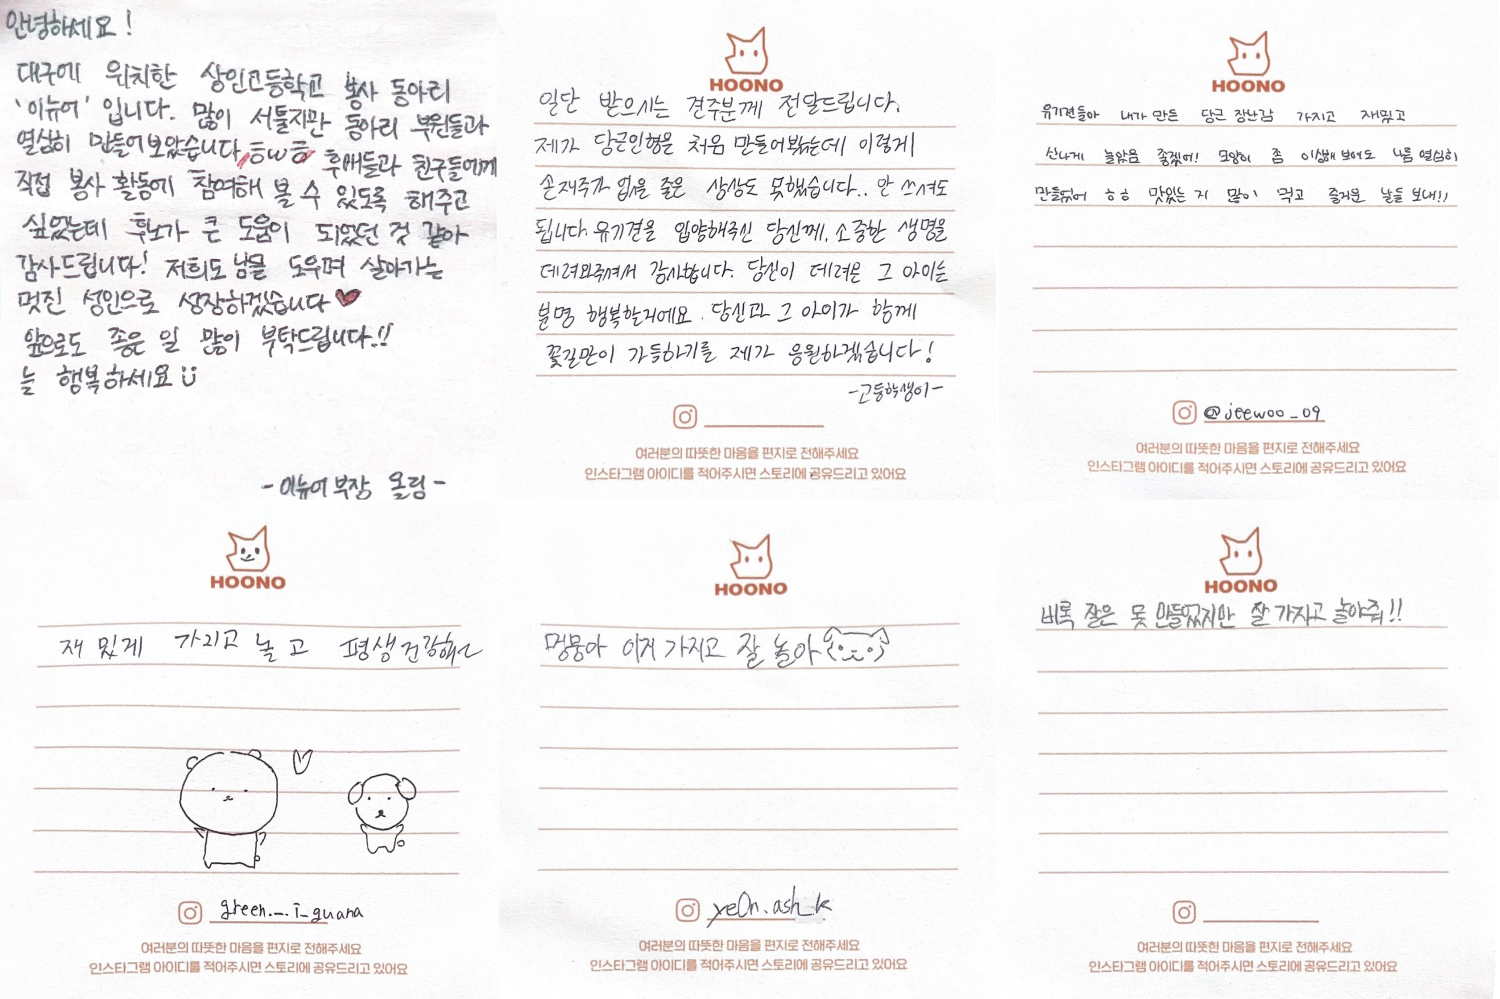 안녕하세요!
대구에 위치한 상인고등학교 봉사 동아리
'이뉴어' 입니다. 많이 서툴지만 동아리 부원들과
열심히 만들어보았습니다 ㅎwㅎ 후배들과 친구들에게
직접 봉사 활동에 참여해 볼 수 있도록 해주고
싶었는데 후노가 큰 도움이 되었던 것 같아
감사드립니다! 저희도 남을 도우며 살아가는
멋진 성인으로 성장하겠습니다
앞으로도 좋은 일 많이 부탁드립니다!!
늘 행복하세요
- 이뉴어 부장 올림 -
HOONO
일단 받으시는 견주분께 전달드립니다.
제가 당근인형은 처음 만들어봤는데 이렇게
손재주가 없을 줄은 상상도 못했습니다.. 안 쓰셔도
됩니다. 유기견을 입양해주신 당신께, 소중한 생명을
데려와주셔서 감사합니다. 당신이 데려온 그 아이는
분명 행복할거에요. 당신과 그 아이가 함께
꽃길만이 가득하기를 제가 응원하겠습니다!
-고등학생이-
여러분의 따뜻한 마음을 편지로 전해주세요
인스타그램 아이디를 적어주시면 스토리에 공유드리고 있어요
HOONO
유기견들아 내가 만든 당근 장난감 가지고 재밌고
신나게 놀았음 좋겠어! 모양이 좀 이상해 보여도 나름 열심히
만들었어 ㅎㅎ 맛있는 거 많이 먹고 즐거운 날들 보내!!
@jeewoo_09
여러분의 따뜻한 마음을 편지로 전해주세요
인스타그램 아이디를 적어주시면 스토리에 공유드리고 있어요
HOONO
재밌게 가지고 놀고 평생 건강해~
green._.i_guana
여러분의 따뜻한 마음을 편지로 전해주세요
인스타그램 아이디를 적어주시면 스토리에 공유드리고 있어요
HOONO
멍뭉아 이거 가지고 잘 놀아
ye0n.ash_k
여러분의 따뜻한 마음을 편지로 전해주세요
인스타그램 아이디를 적어주시면 스토리에 공유드리고 있어요
HOONO
비록 잘은 못 만들었지만 잘 가지고 놀아줘!!
여러분의 따뜻한 마음을 편지로 전해주세요
인스타그램 아이디를 적어주시면 스토리에 공유드리고 있어요